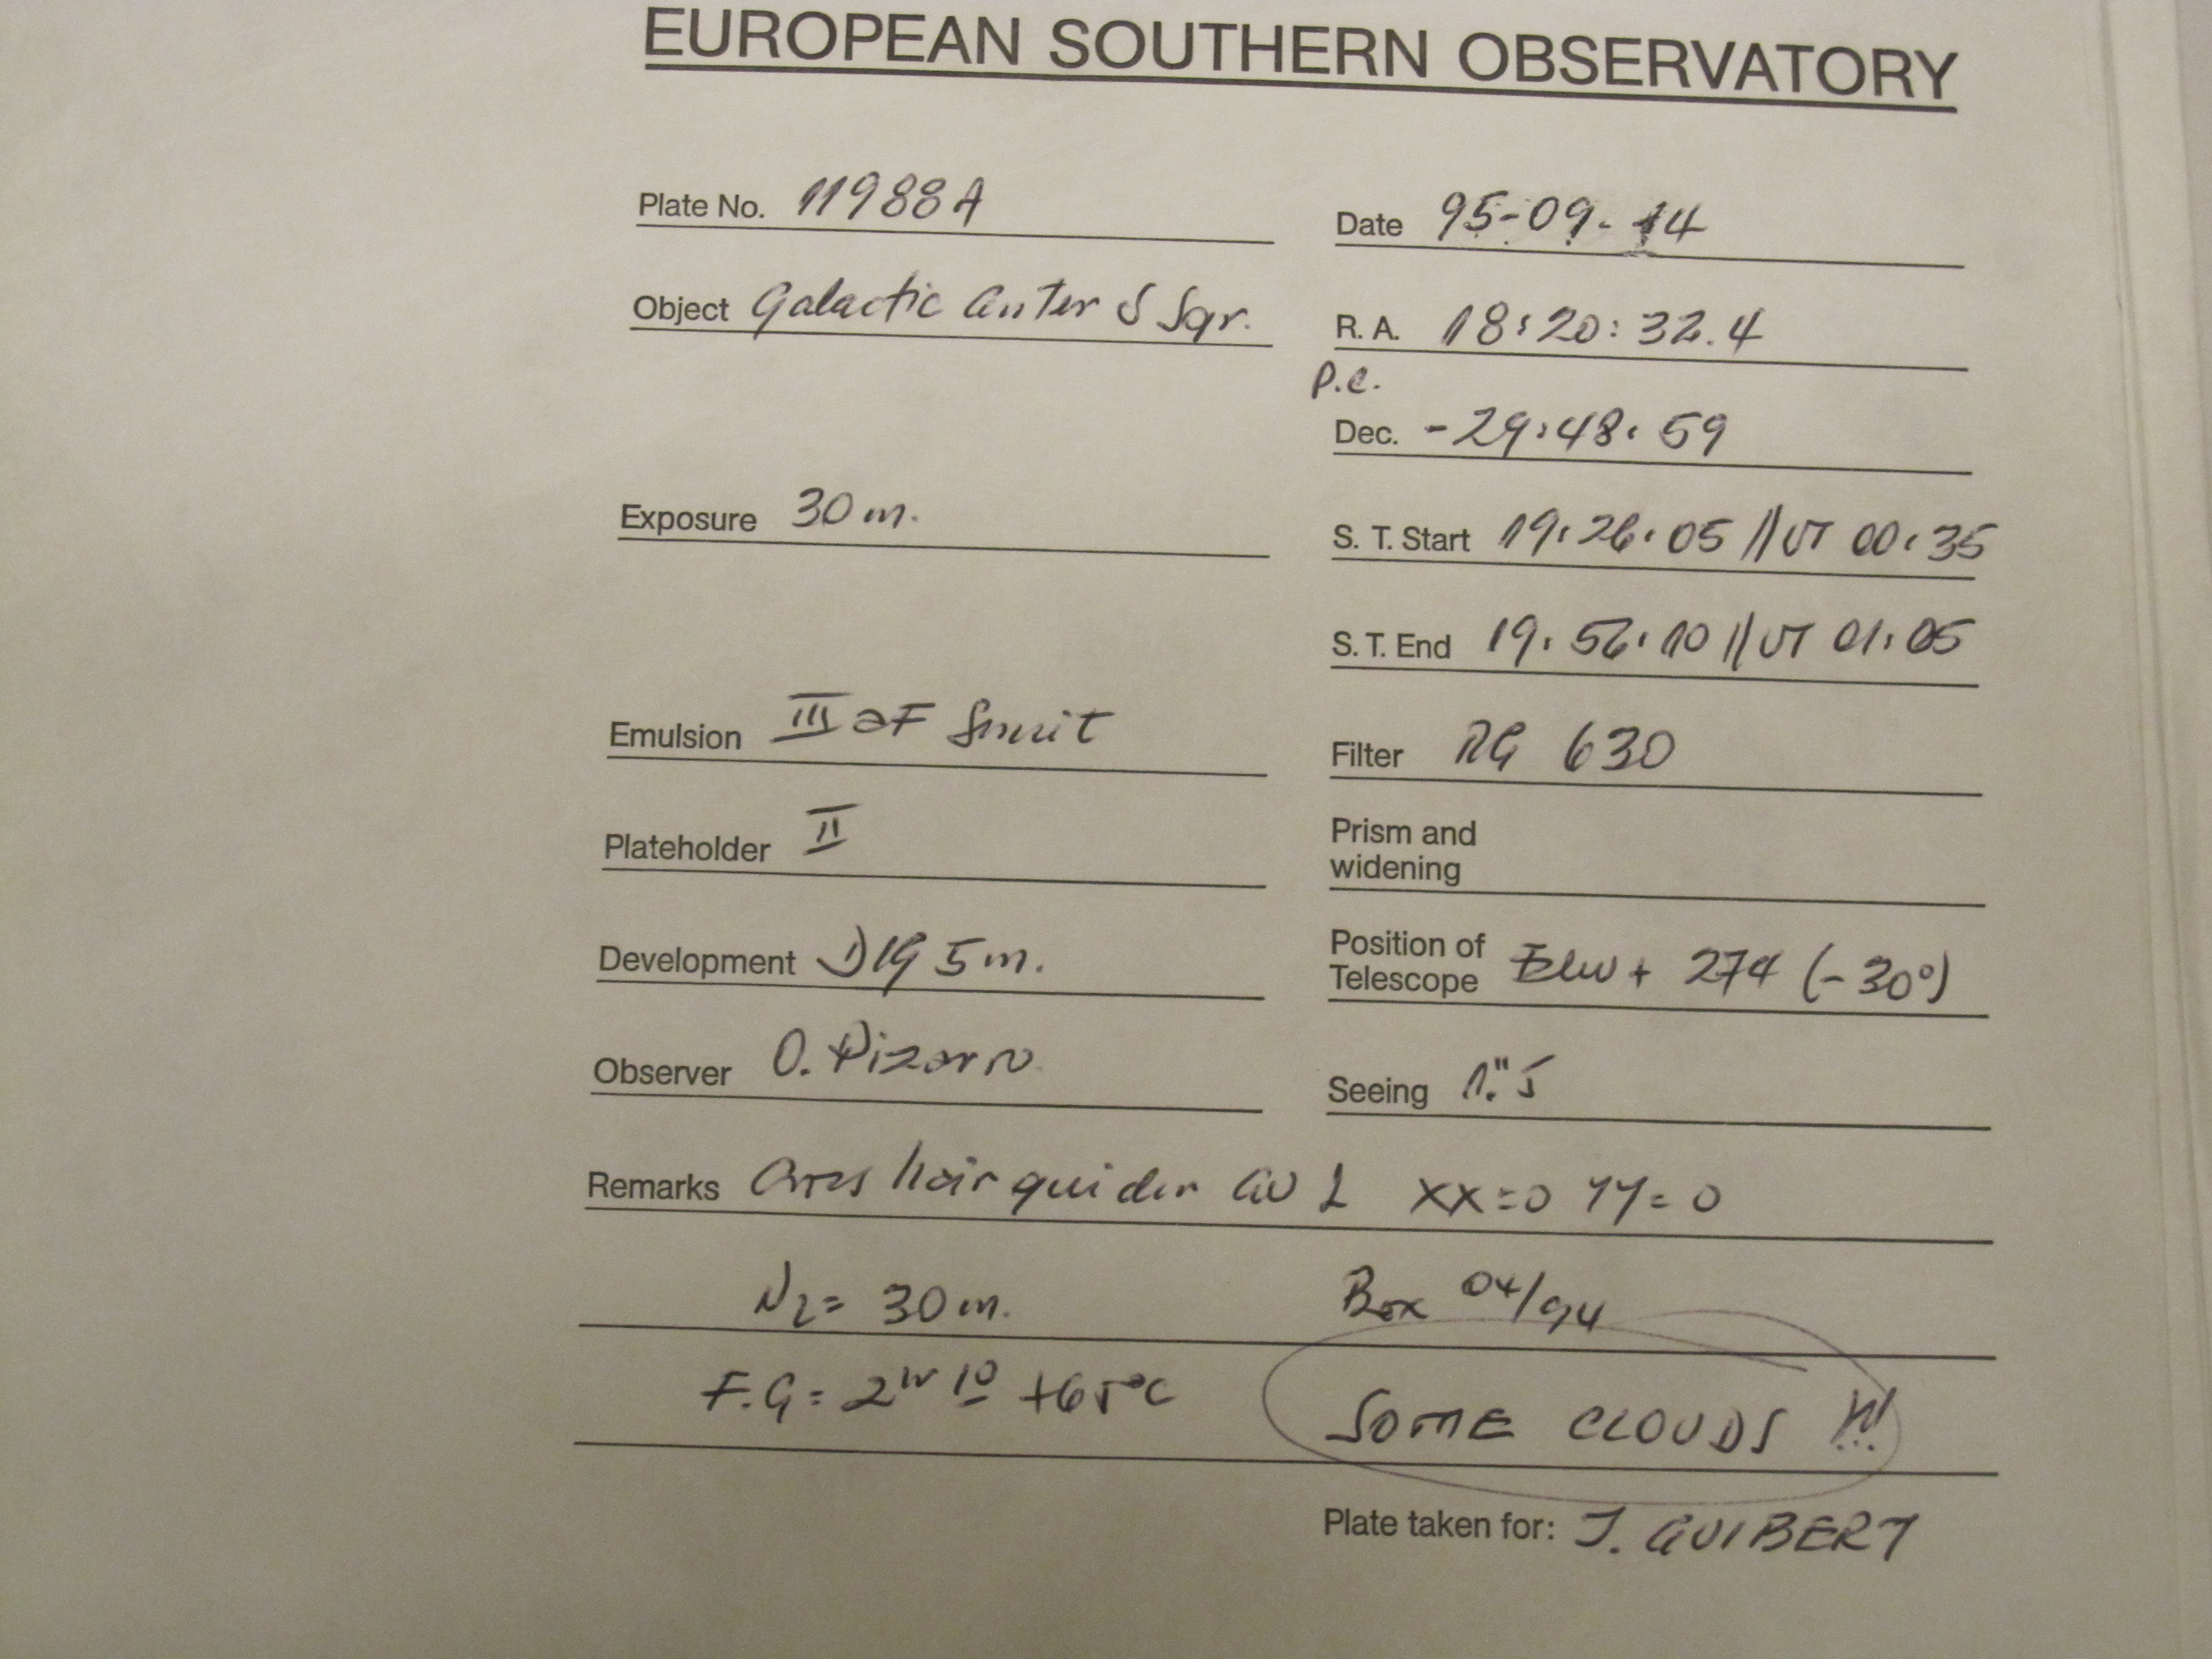 EUROPEAN SOUTHERN OBSERVATORY
Plate No. 11988A
Date 95-09-14
Object Galactic Center S Sgr.
R. A. 18:20:32.4
P.C.
Dec. -29:48:59
Exposure 30 m.
S. T. Start 19:26:05 // UT 00:35
S. T. End 19:56:10 // UT 01:05
Emulsion III aF
Filter RG 630
Plateholder II
Prism and
widening
Development D19 5 m.
Position of
Telescope + 274 (-30°)
Observer O. Pizarro
Seeing 1."5
Remarks Cross hair guider XX=0 YY=0
N2= 30 m. Box 04/94
F.G= 2 10 +65°C
SOME CLOUDS !!!
Plate taken for: J. GUIBERT